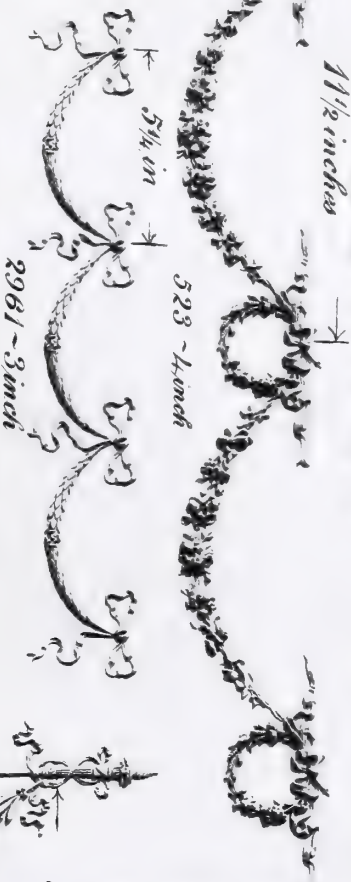 11½ inches
523 ~ 4 inch
5¼ in
2961 ~ 3 inch